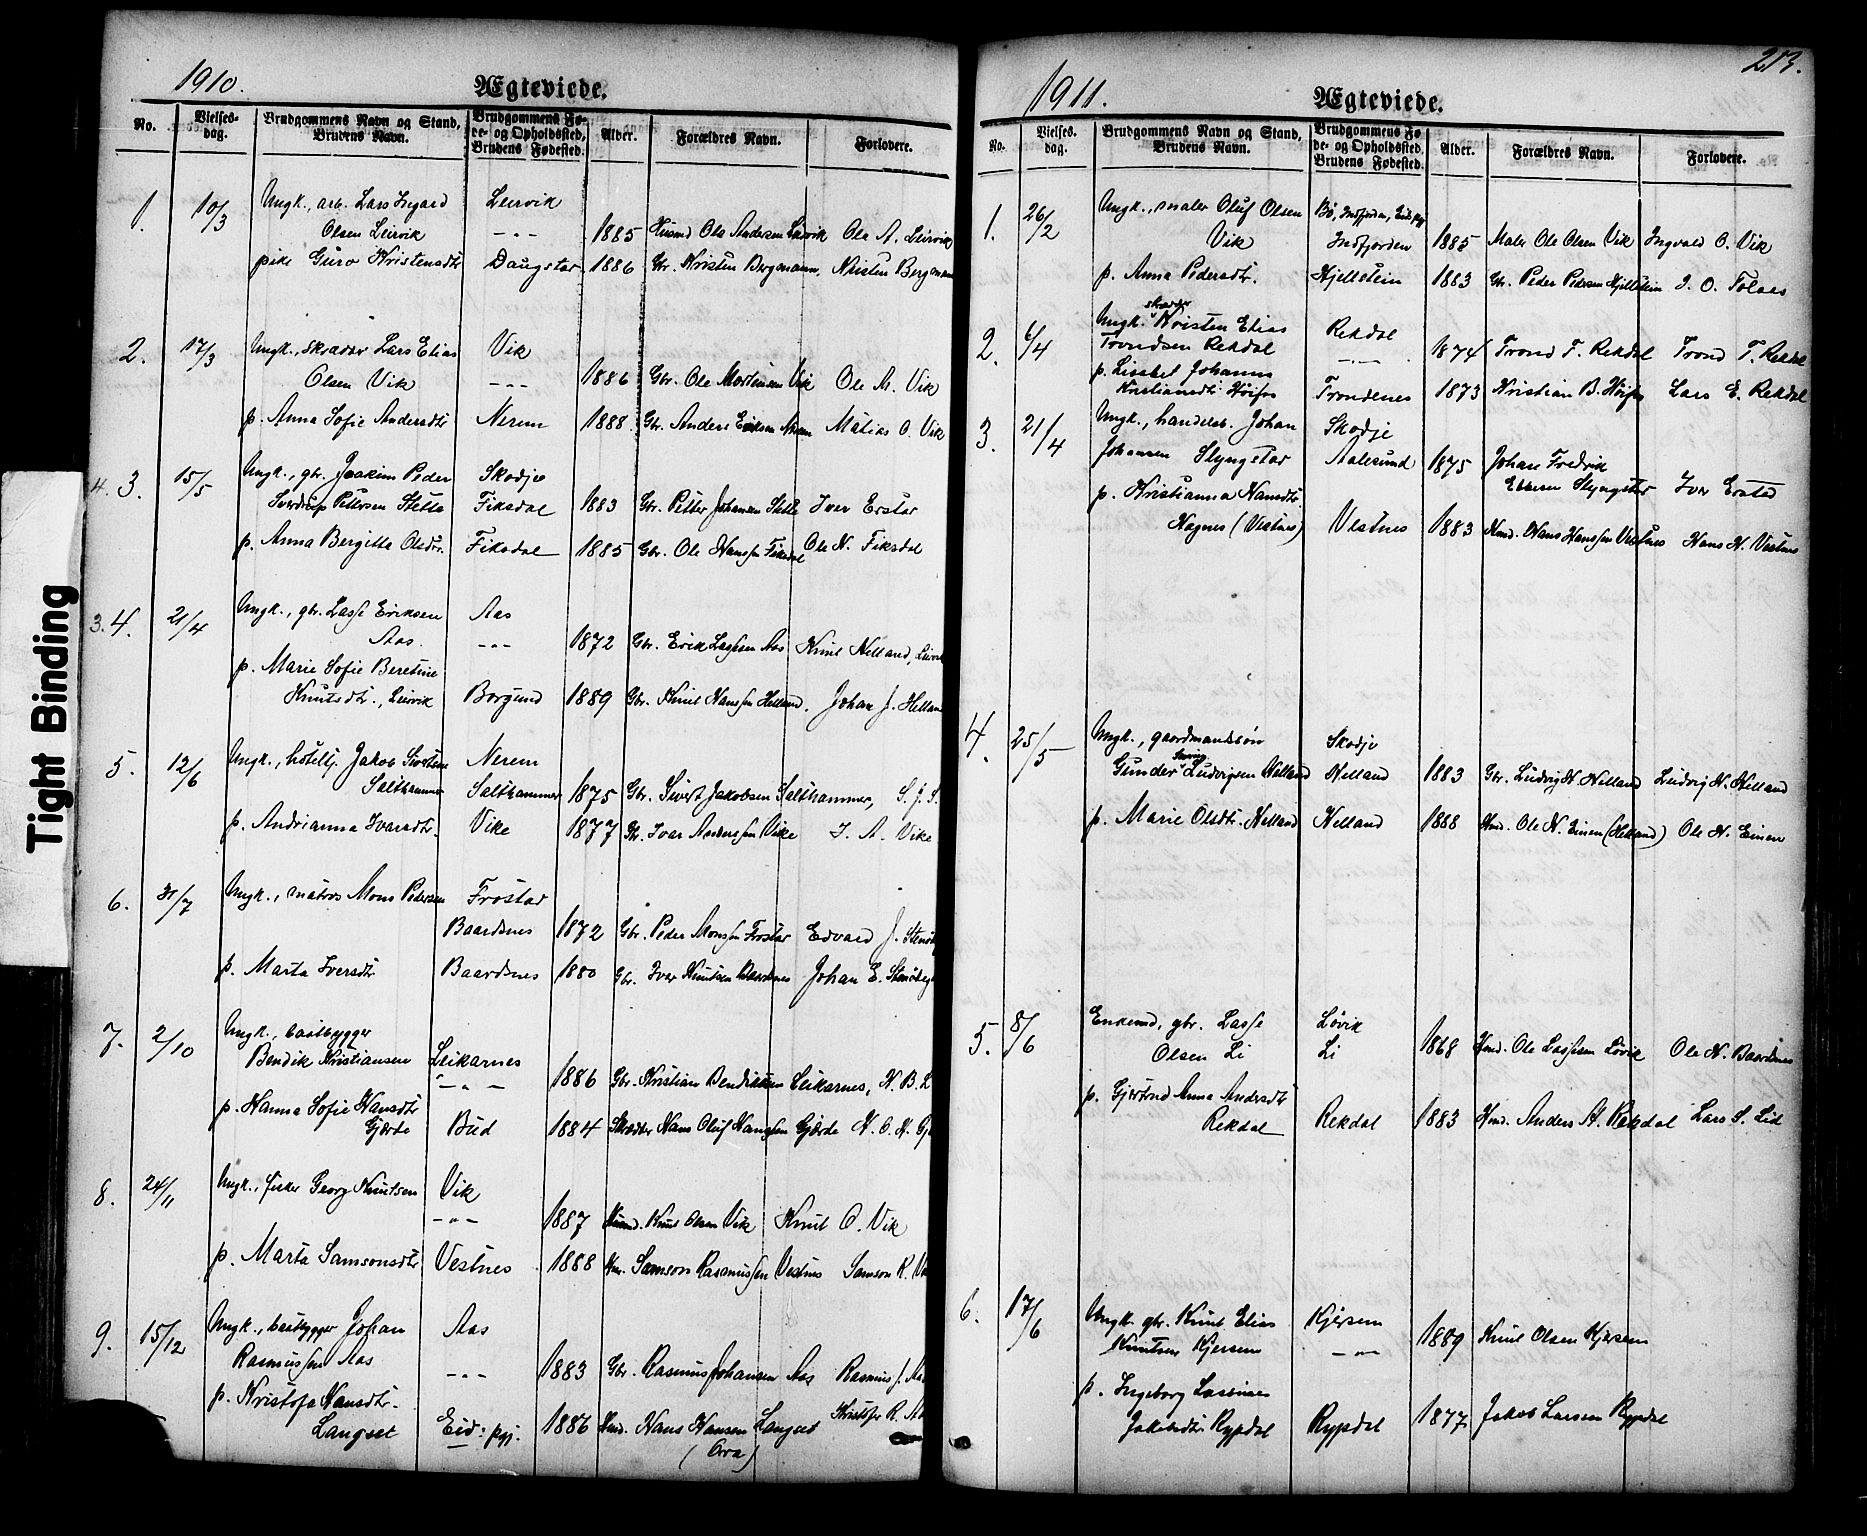 1910.
Ægteviede.
No.
Vielses-
dag.
Brudgommens Navn og Stand,
Brudens Navn.
Brudgommens Fø-
de- og Opholdssted,
Brudens Fødested.
Alder.
Forældres Navn.
Forlovere.
1. 10/3 Ungk., arb. Lars Leirvik
Olsen Leirvik -"- 1885 Husmd Ole Andersen Leirvik Ole A. Leirvik
pike Guro Kristensdtr Daugstad 1886 Gbr. Kristen Bergmann, Kristen Bergmann
2. 17/3 Ungk., skræder Lars Elias Vik
Olsen Vik -"- 1886 Gbr. Ole Martinsen Vik Ole M. Vik
p. Anna Sofie Andersdtr Nerem 1888. Gbr. Anders Eriksen Nerem Matias O. Vik
4. 3. 15/5 Ungk., gbr. Joakim Peder Skodje
Sverdrup Pettersen Stette Fiksdal 1883 Gbr. Petter Johansen Stette Iver Erstad
p. Anna Bergitte Olsdtr. Fiksdal 1885 Gbr. Ole Hanssen Fiksdal Ole N. Fiksdal
3. 4. 21/4 Ungk., gbr. Lasse Eriksen Aas
Aas. -"- 1872 Gbr. Erik Lassesen Aas Knut Helland, Leirvik
p. Marie Sofie Beretine
Knutsdtr., Leirvik Borgund 1889 Gbr. Knut Hanssen Helland. Johan J. Helland
5. 12/6 Ungk., hotellj. Jakob Sivertsen Nerem
Salthammer Salthammer 1875 Gbr. Sivert Jakobsen Salthammer, S. J. S.
p. Andrianna Ivarsdtr. Vike 1877 Gbr. Ivar Anderssen Vike I. A. Vike
6. 31/7 Ungk., matros Mons Pedersen Frostad
Baardsnes 1872 Gbr. Peder Monssen Frostad Edvard J.
p. Marta Iversdtr Baardsnes 1880 Gbr. Iver Knutsen Baardsnes Johan E.
7. 2/10 Ungk., baatbygger
Bendik Kristiansen Leikarnes
-"- 1886 Gbr. Kristian Bendiksen Leikarnes, K. B. L
p. Hanna Sofie Hansdtr
Gjærde Bud 1884 Skræder Hans Oluf Hanssen Gjærde H. O. H. Gj
8. 24/11 Ungk., fisker Georg Knutsen Vik
-"- 1887 Husmd. Knut Olsen Vik Knut O. Vik
p. Marta Samsonsdtr Vestnes 1888 Samson Rasmussen Vestnes Samson R. V
9. 15/12 Ungk., baatbygger Johan Aas
Rasmussen Aas -"- 1883 Gbr. Rasmus Johansen Aas Rasmus J. Aas
p. Kristofa Hansdtr.
Langset Eid: pgj. 1886 Hmd. Hans Hansen Langset Kristofer R. Aa
(Ora)
1911.
Ægteviede.
213.
No.
Vielses-
dag.
Brudgommens Navn og Stand,
Brudens Navn.
Brudgommens Fø-
de- og Opholdssted,
Brudens Fødested.
Alder.
Forældres Navn.
Forlovere.
1. 26/2 Ungk., maler Oluf Olsen Bø, Indfjorden, Eid pgj
Vik Indfjorden 1885 Maler Ole Olsen Vik Ingvald O. Vik
p. Anna Pedersdtr. Hjeltstein 1883 Gbr. Peder Pedersen Hjeltstein
2. 6/4 Ungk. skræder Kristen Elias Rekdal
Trondsen Rekdal -"- 1874 Trond T. Rekdal Trond T. Rekdal
p. Lissbet Johanna
Kristiansdtr. Trondenes 1873 Kristian B. Lars E. Rekdal
3. 21/4 Ungk., handelsb. Johan Skodje
Johansen Slyngstad Aalesund 1875 Johan Fredrik
Slyngstad Iver Ersted
p. Kristianna Hansdtr.
Hagnes (Vestnes) Vestnes 1883 Hmd. Hans Hanssen Vestnes Hans H. Vestnes
4. 25/5 Ungk., gaardmandssøn Skodje
Gunder Ludvigsen Helland Helland 1883 Gbr. Ludvig H. Helland Ludvig H. Helland
p. Marie Olsdtr. Helland Helland 1888 Hmd. Ole N. Einen (Helland) Ole N. Einen
5. 8/6 Enkemd, gbr. Lasse Løvik
Olsen Li Li 1868 Hmd. Ole Lassesen Løvik Ole N. Baardsnes
p. Gjertrud Anna Andersdtr
Rekdal Rekdal 1883 Hmd. Anders A. Rekdal Lars S. Lid
6. 17/6 Ungk. gbr. Knut Elias Kjersem
Knutsen Kjersem -"- 1889 Knut Olsen Kjersem
p. Ingeborg Lassine
Jakobsdtr. Rypdal Rypdal 1877 Jakob Larsen Rypdal
Tight Binding